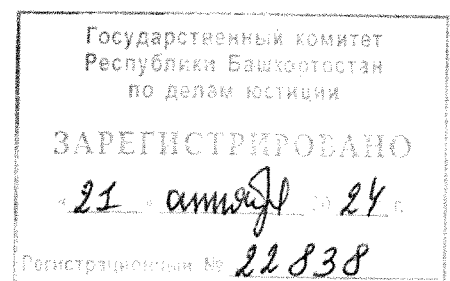 Государственный комитет
Республики Башкортостан
по делам юстиции
ЗАРЕГИСТРИРОВАНО
« 21 » октября 20 24 г.
Регистрационный № 22838